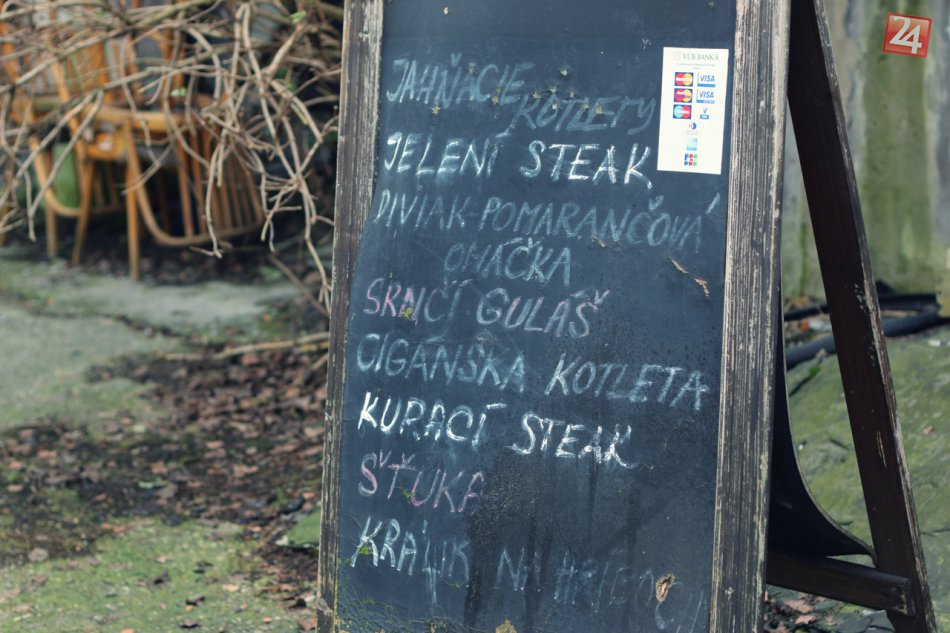 24
VÚB BANKA
VISA
VISA
V
JAHŇACIE
KOTLETY
JELENÍ STEAK
DIVIAK-POMARANČOVÁ
OMÁČKA
SRNČÍ GULÁŠ
CIGÁNSKA KOTLETA
KURACÍ STEAK
ŠŤUKA
KRÁLIK NA